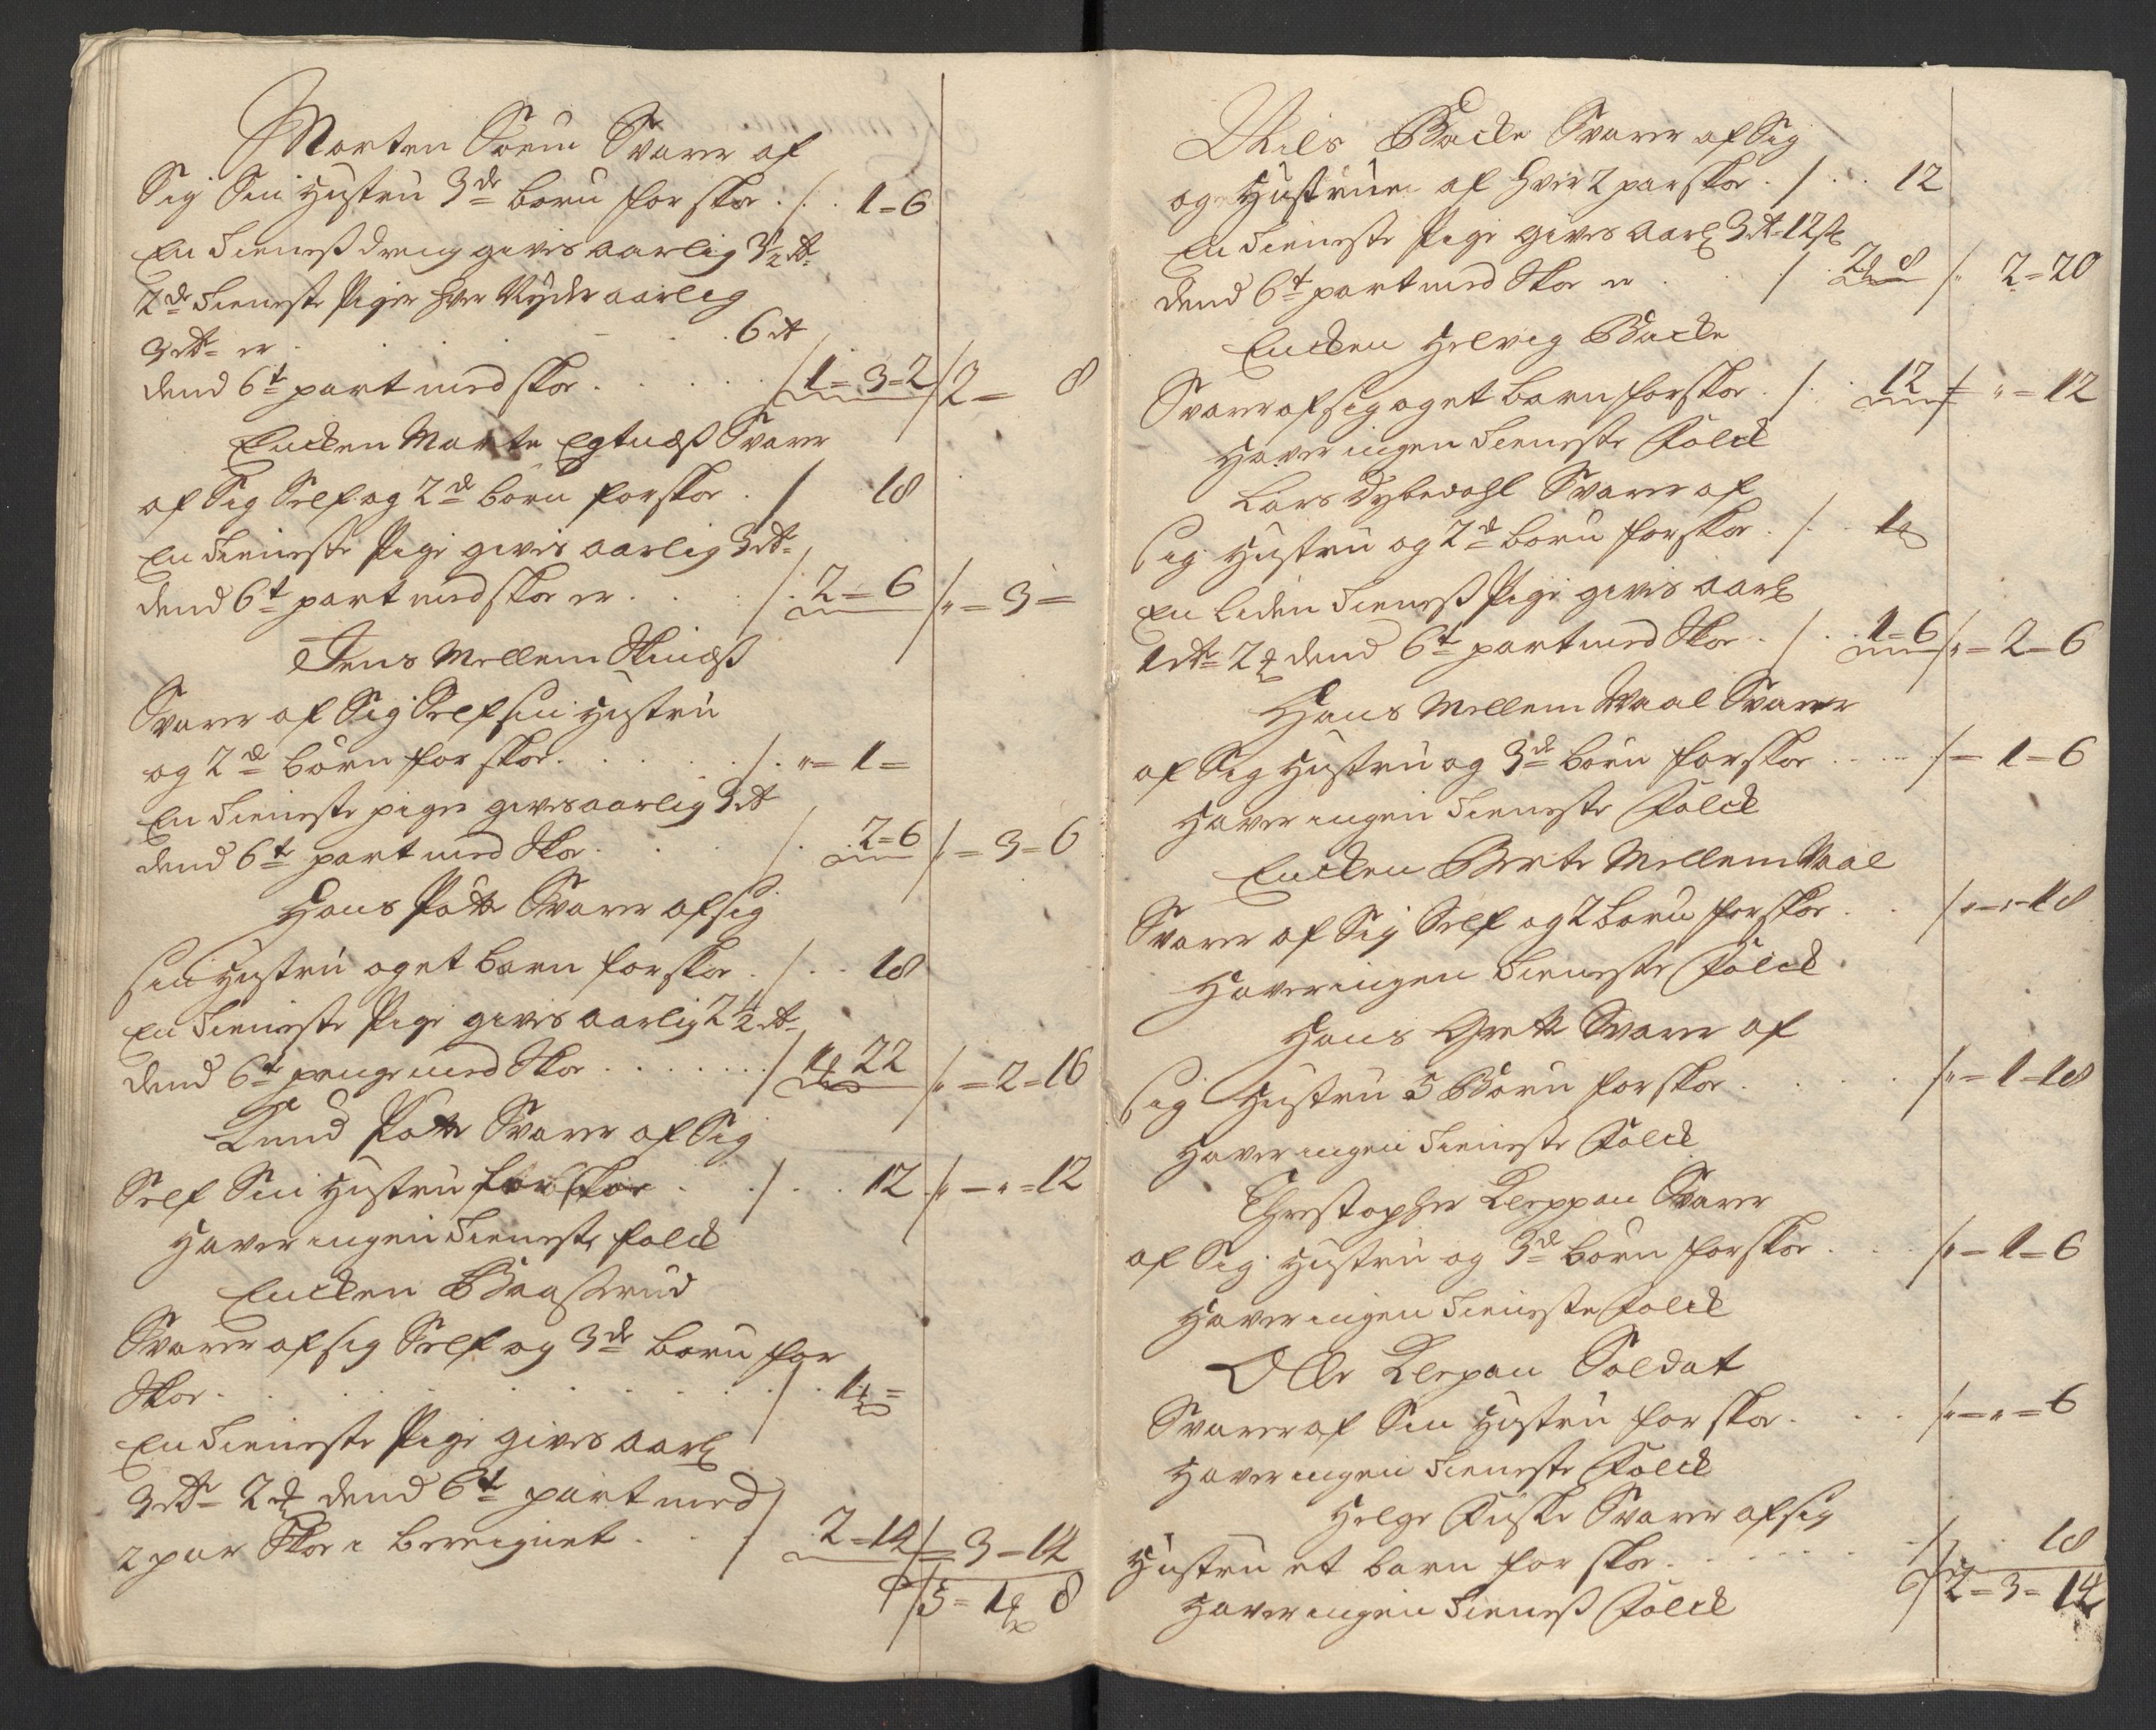 Morten Soeni Svarer af
Sig Sin Hustru 3de born for skoe . /. . 1=6
En Tieneste dreng gives aarlig 3½ rd
2de Tieneste Piger hver Nyder aarlig
3 rd er . . . . . 6 rd
dend 6te part med skoe . . . . . / 1=3=2 / 2= 8
Encken Marte Egtnæs Svarer
af Sig Self og 2de born for skoe . / 18
En Tieneste Pige gives aarlig 3 rd
dend 6te part med skoe er . . . /. 2=6 /"=3=
Jens Mellem Skinæs
Svarer af Sig Self sin Hustru
og 2de børn for skoe . . . . . /. "=1=
En Tieneste pige gives aarlig 3 rd
dend 6te part med Skoe . . . /. 2=6 /"=3=6
Hans Potte Svarer af sig
sin Hustru og et barn for skoe . /. . 18
En Tieneste Pige gives aarlig 2½ rd
dend 6te penge med Skoe . . . . . / 1 22 /"=2=16
Knud Potte Svarer af Sig
Self Sin Hustru for skoe . ./. . . 12 /"="=12
Haver ingen Tieneste folck
Encken Baaserud
Svarer af sig Self og 3de born for
Skoe . . . . . . . . . . /. . 1=
En Tieneste Pige gives aarl
3 rd 2 dend 6te part med
2 par Skoe i beregnet . . . / 2=14 /=3=14
/5=1 8
Nils Backe Svarer af Sig
og Hustruen af hver 2 par skoe . /. . . 12
En Tieneste Pige gives aarl 3 rd 12 sk
dend 6te part med Skoe er . . / 2 8 /" 2=20
Encken Helvig Backe
Svarer af sig og et barn for skoe . /. . 12 / "=12
Haver ingen Tieneste Folck
Lars Dybedahl Svarer af
sig Hustru og 2de born for skoe . /. . 1
En liden Tieneste Pige gives aarl
1 rd 2 dend 6te part med Skoe . /. . 1=6 /"=2=6
Hans Mellem Waal Svarer
af Sig Hustru og 3de born for skoe . . . . /=1=6
Haver ingen Tieneste Folck
Encken Berte Mellem Waal
Svarer af Sig Self og 2 born for skoe . . /"="=18
Haver ingen Tieneste Folck
Hans Grette Svarer af
sig Hustru 5 Børn for skoe . . . . . /"=1=18
Haver ingen Tieneste Folck
Christopher Kleppan Svarer
af Sig Hustru og 3de børn for skoe . . . /"=1=6
Haver ingen Tieneste Folck
Olle Klepan Soldat
Svarer af Sin Hustru for skoe . . . . /"="=6
Haver ingen Tieneste Folck
Helge Fiske Svarer af sig
Hustru et barn for skoe . . . . . . ./. . 18
Haver ingen Tieneste Folck /2=3=14